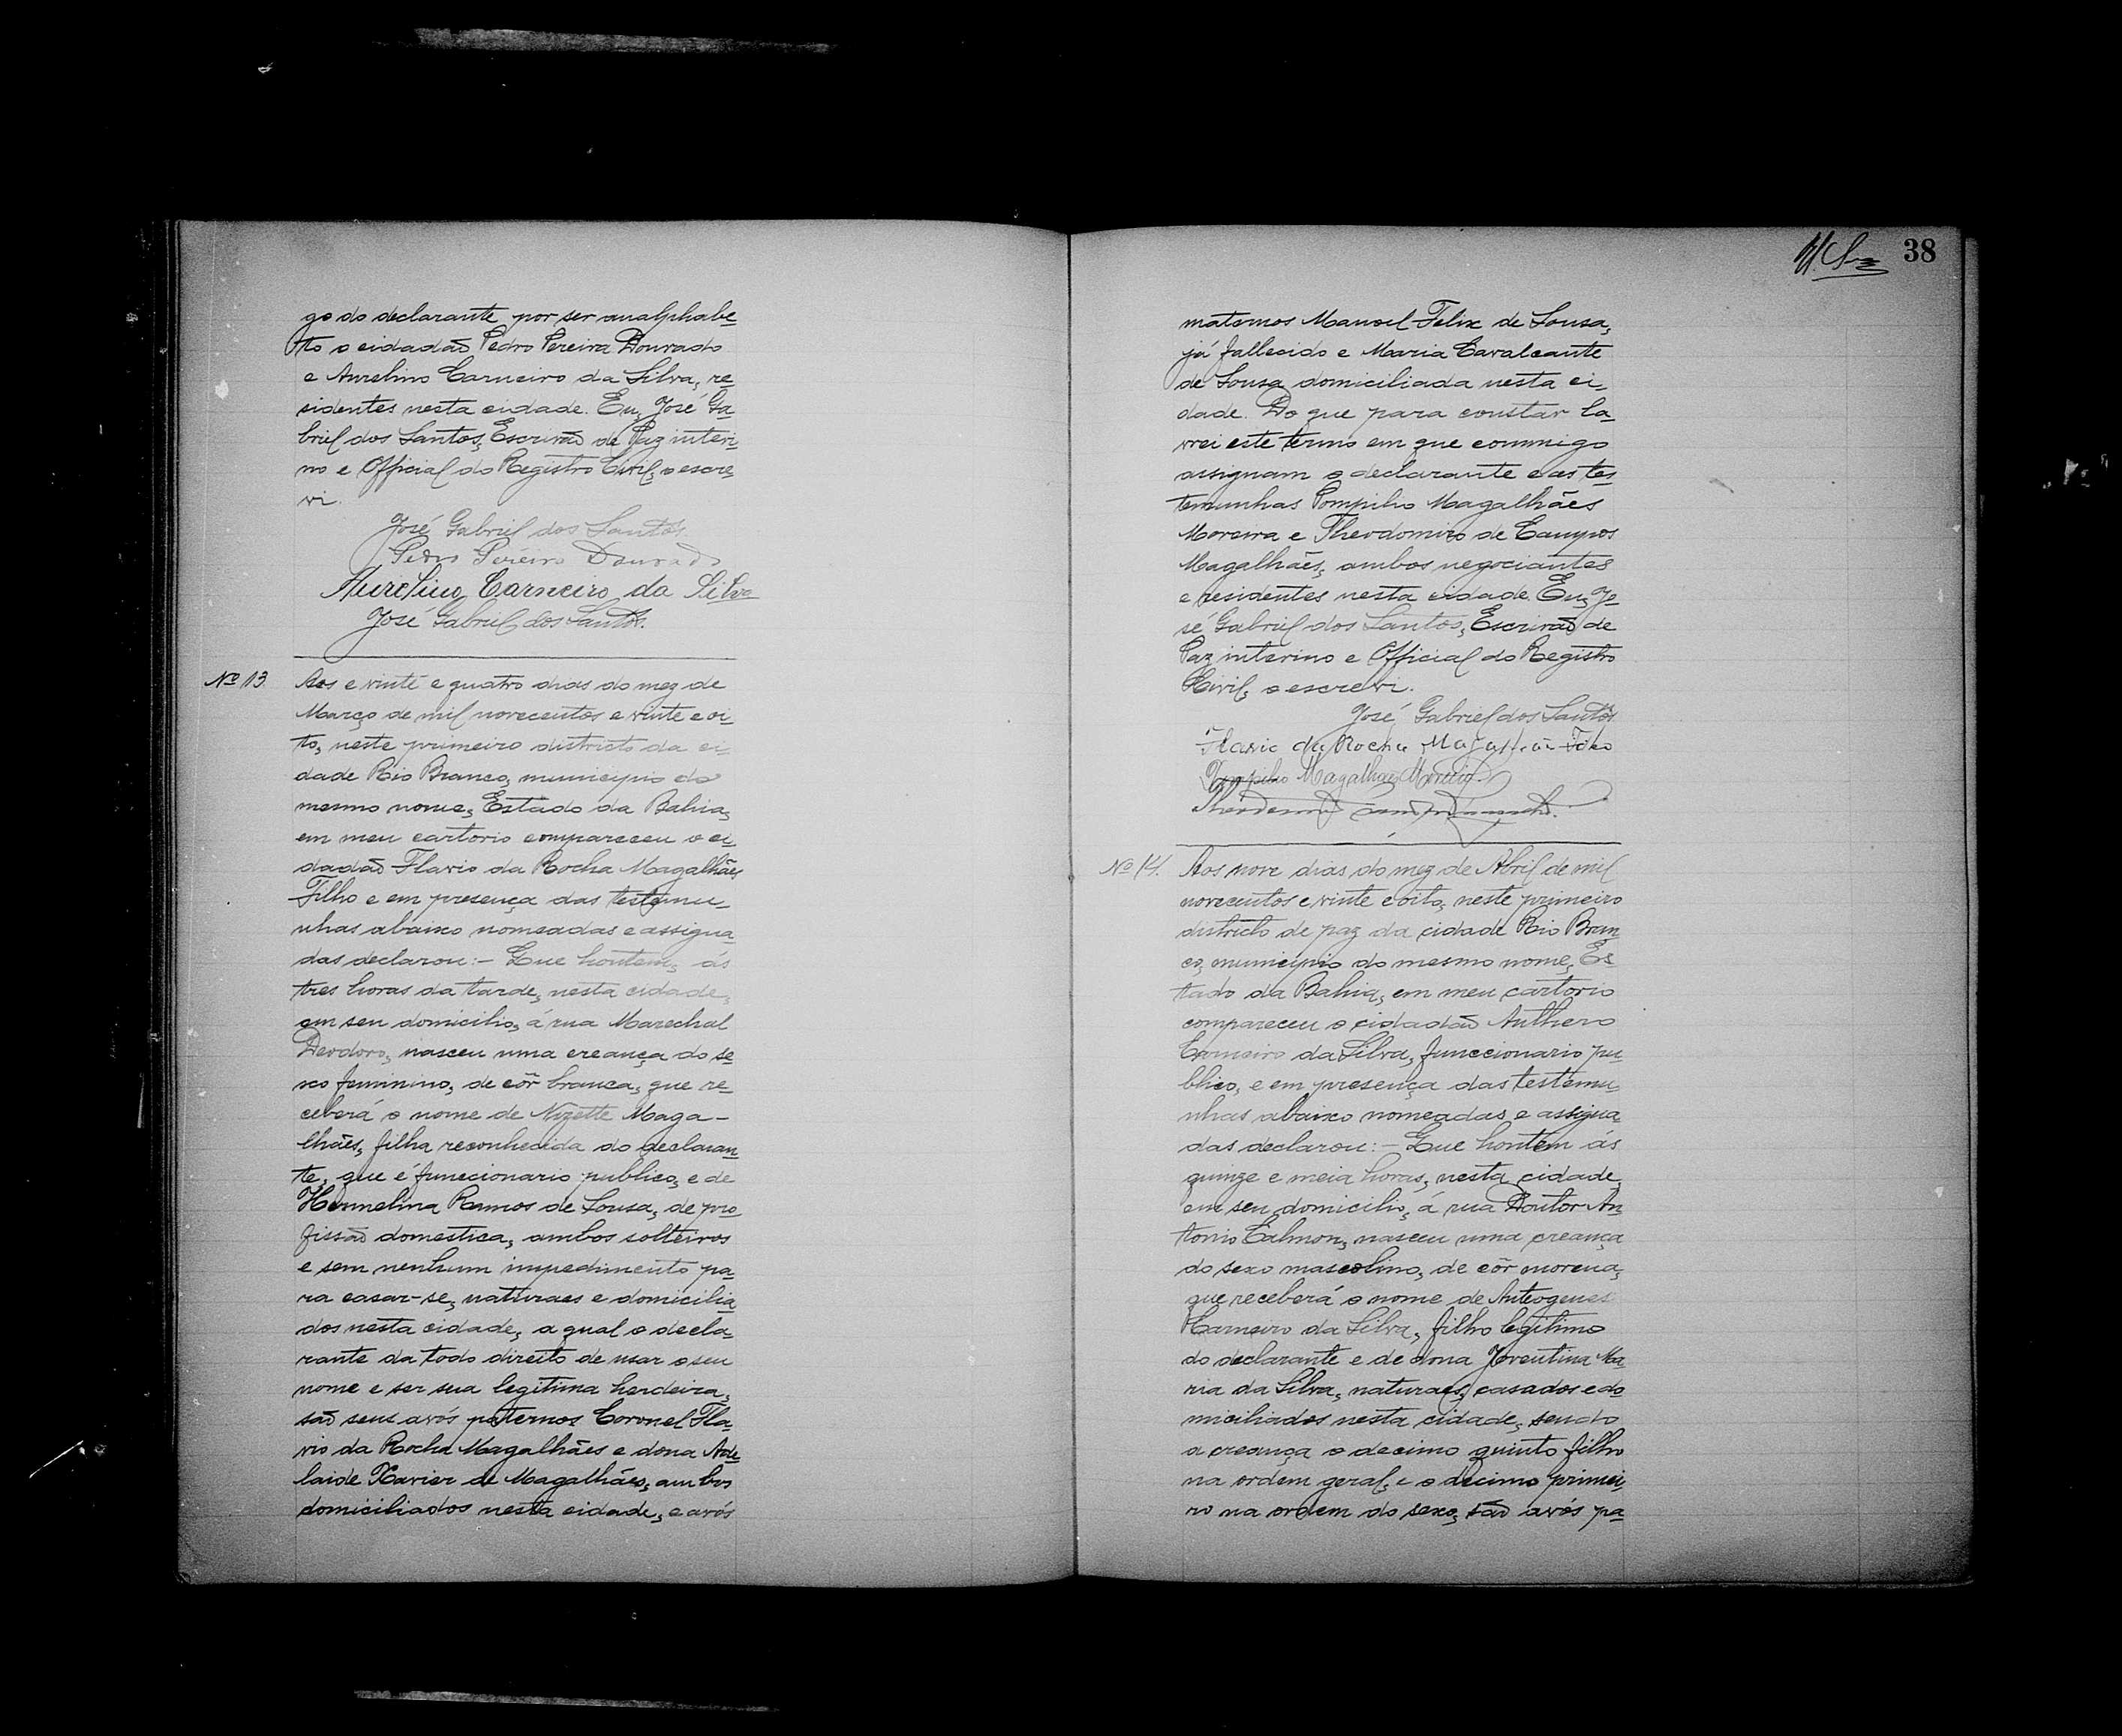 go do declarante por ser analphabe-
to o cidadão Pedro Pereira Dourado
e Aurelino Carneiro da Silva, re-
sidentes nesta cidade. Eu, José Ga-
briel dos Santos, Escrivão de Paz interi-
no e Official do Registro Civil, o escre-
vi.
José Gabriel dos Santos
Pedro Pereira Dourado
Aurelino Carneiro da Silva
José Gabriel dos Santos.
Nº 13
Aos e vinte e quatro dias do mez de
Março de mil novecentos e vinte e oi-
to, neste primeiro districto da ci-
dade Rio Branco, municipio do
mesmo nome, Estado da Bahia,
em meu cartorio compareceu o ci-
dadão Flavio da Rocha Magalhães
Filho e em presença das testemu-
nhas abaixo nomeadas e assigna-
das declarou:- Que hontem, ás
tres horas da tarde, nesta cidade,
em seu domicilio, á rua Marechal
Deodoro, nasceu uma creança do se-
xo feminino, de côr branca, que re-
ceberá o nome de Nizette Maga-
lhães, filha reconhecida do declaran-
te, que é funccionario publico, e de
Hermelina Ramos de Sousa, de pro-
fissão domestica, ambos solteiros
e sem nenhum impedimento pa-
ra casar-se, naturaes e domicilia-
dos nesta cidade, a qual o decla-
rante da todo direito de usar o seu
nome e ser sua legitima herdeira,
são seus avós paternos Coronel Fla-
vio da Rocha Magalhães e dona Ade-
laide Xavier de Magalhães, ambos
domiciliados nesta cidade, e avós
38
maternos Manoel Felix de Sousa,
já fallecido e Maria Cavalcante
de Sousa domiciliada nesta ci-
dade. Do que para constar la-
vrei este termo em que commigo
assignam o declarante e as tes-
temunhas Pompilio Magalhães
Moreira e Theodomiro de Campos
Magalhães, ambos negociantes
e residentes nesta cidade. Eu, Jo-
sé Gabriel dos Santos, Escrivão de
Paz interino e Official do Registro
Civil, o escrevi.
José Gabriel dos Santos
Flavio da Rocha Magalhães Filho
Pompilio Magalhães Moreira
Nº 14.
Aos nove dias do mez de Abril de mil
novecentos e vinte e oito, neste primeiro
districto de paz da cidade Rio Bran-
co, municipio do mesmo nome, Es-
tado da Bahia, em meu cartorio
compareceu o cidadão Anthero
Carneiro da Silva, funccionario pu-
blico, e em presença das testemu-
nhas abaixo nomeadas e assigna-
das declarou:- Que hontem ás
quinze e meia horas, nesta cidade,
em seu domicilio, á rua Doutor An-
tonio Calmon, nasceu uma creança
do sexo mascolino, de côr morena,
que receberá o nome de Anteogenes
Carneiro da Silva, filho legitimo
do declarante e de dona Joventina Ma-
ria da Silva, naturaes, casados e do-
miciliados nesta cidade, sendo
a creança o decimo quinto filho
na ordem geral, e o decimo primei-
ro na ordem do sexo, são avós pa-